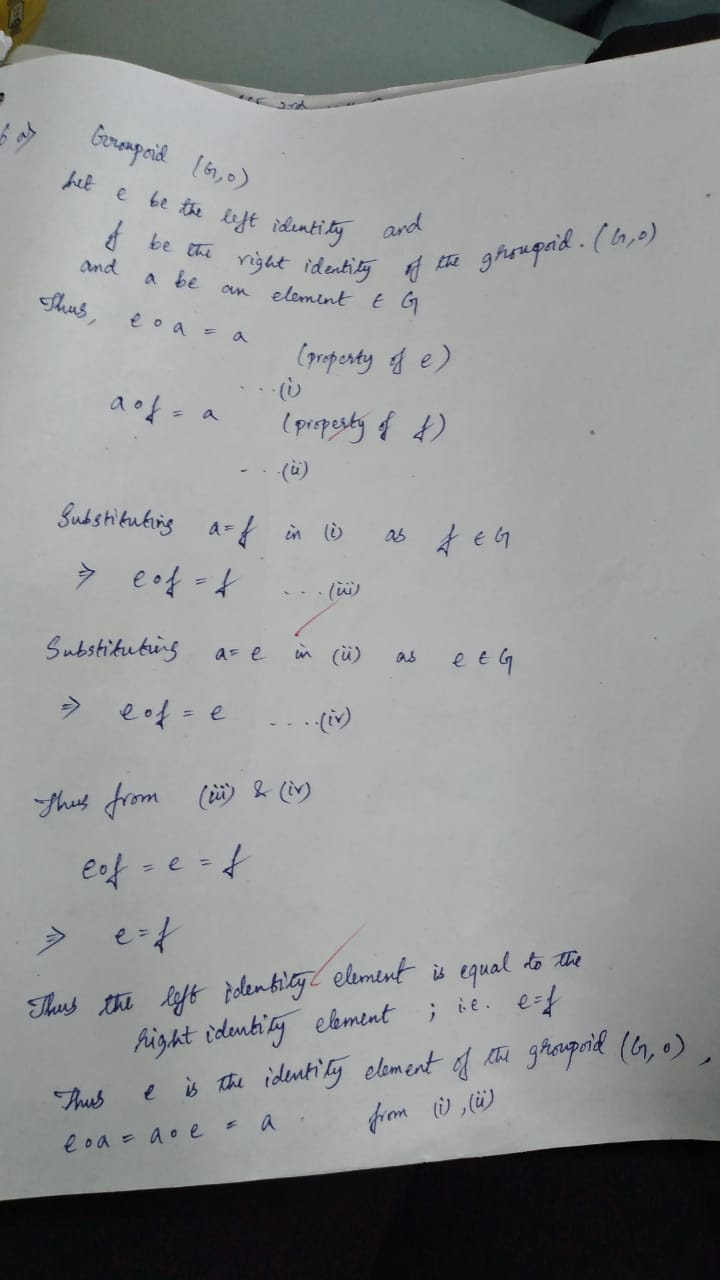 6 a)
Groupoid (G,o)
Let e be the left identity and
f be the right identity of the groupoid. (G,o)
and a be an element ∈ G
Thus, e o a = a
(property of e)
...(i)
a o f = a (property of f)
...(ii)
Substituting a=f in (i) as f ∈ G
⇒ e o f = f ...(iii)
Substituting a= e in (ii) as e ∈ G
⇒ e o f = e ....(iv)
Thus from (iii) & (iv)
e o f = e = f
⇒ e=f
Thus the left identity element is equal to the
right identity element ; i.e. e=f
Thus e is the identity element of the groupoid (G,o),
e o a = a o e = a from (i),(ii)